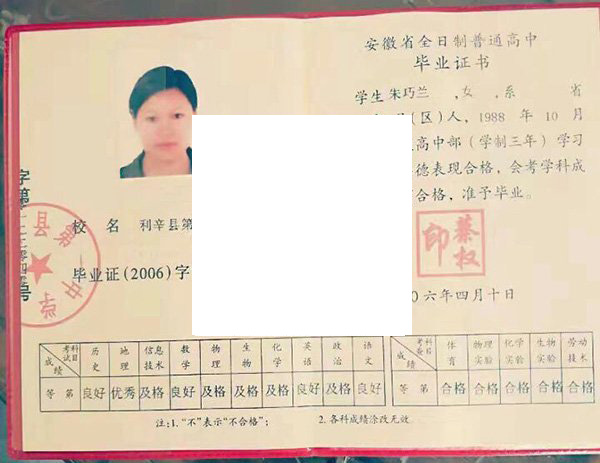 安徽省全日制普通高中
毕业证书
学生 朱巧兰 ,女 ,系 省
(区)人, 1988 年 10 月
高中部(学制三年)学习
德表现合格, 会考学科成
合格, 准予毕业。
校名 利辛县第
毕业证(2006)字
蔡权印
06年四月十日
县第
中学
字第
号
考试科目 历史 地理 信息技术 数学 物理 生物 化学 英语 政治 语文
成绩等第 良好 优秀 及格 良好 及格 及格 及格 良好 及格 良好
考查科目 体育 物理实验 化学实验 生物实验 劳动技术
成绩等第 合格 合格 合格 合格 合格
注:1. “不”表示“不合格”; 2. 各科成绩涂改无效。